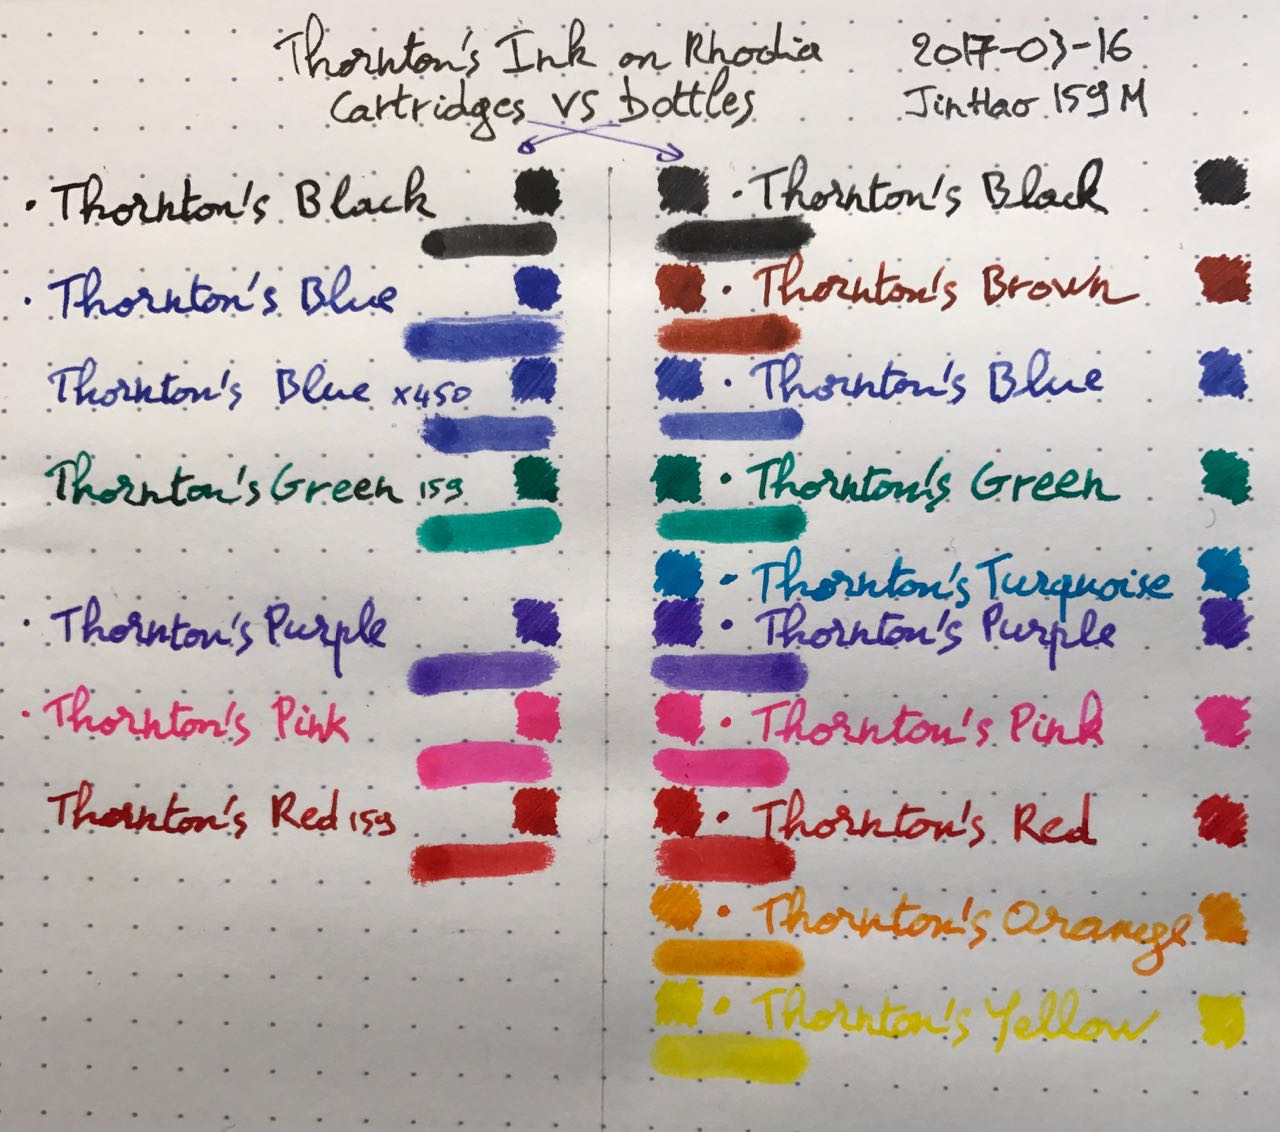 Thornton's Ink on Rhodia
Cartridges vs bottles
2017-03-16
JinHao 159 M
· Thornton's Black
· Thornton's Blue
Thornton's Blue x450
Thornton's Green 159
· Thornton's Purple
· Thornton's Pink
Thornton's Red 159
· Thornton's Black
· Thornton's Brown
· Thornton's Blue
· Thornton's Green
· Thornton's Turquoise
· Thornton's Purple
· Thornton's Pink
· Thornton's Red
· Thornton's Orange
· Thornton's Yellow